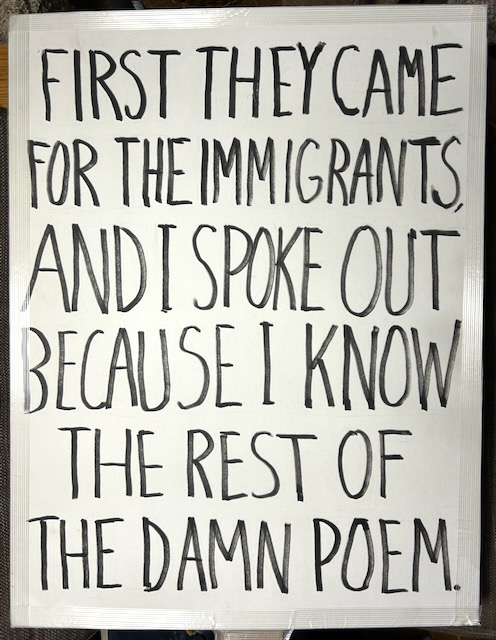 FIRST THEY CAME
FOR THE IMMIGRANTS,
AND I SPOKE OUT
BECAUSE I KNOW
THE REST OF
THE DAMN POEM.